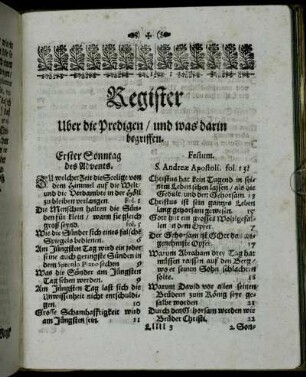 Register
Uber die Predigen / und was darin
begriffen.
Erster Sonntag
des Advents.
ZU welcher Zeit die Seelige von
dem Himmel auf die Welt
und die Verdambte in der Höll
zubleiben verlangen. fol. 1
Die Menschen halten die Sün-
den für klein / warm sie gleich
groß seynd. 6
Wie die Sünder sich eines falsche
Spiegels bedienen. 6
Am Jüngsten Tag wird ein jeder
seine auch geringste Sünden in
dem sehen
Was die Sünder am Jüngsten
Tag sehen werden.
Am Jüngsten Tag last sich die
Unwissenheit nicht entschuldi-
gen. 10
Grosse Schamhafftigkeit wird
am Jüngsten seyn. 11
Festum.
S. Andreæ Apostoli. fol. 13
Christus hat kein Tugend in sei-
nem Leben sehen lassen / als die
Gedult und Gehorsam. 15
Christus ist sein gantzes Leben
lang gehorsam gewesen. 15
Gott hat ein grosses Wohlgefal-
len in dem Opfer. 17
Der Gehorsam ist Gott das an-
genehmste Opfer. 17
Warum Abraham drey Tag hat
müssen raisen auf den Berg /
wo er seinen Sohn schlachten
solte. 18
Warum David vor allen seinen
Brüdern zum König seye ge-
salbet worden
Durch den Gehorsam werden wir
Brüder Christi. 22
Lllll 3
2. Son-